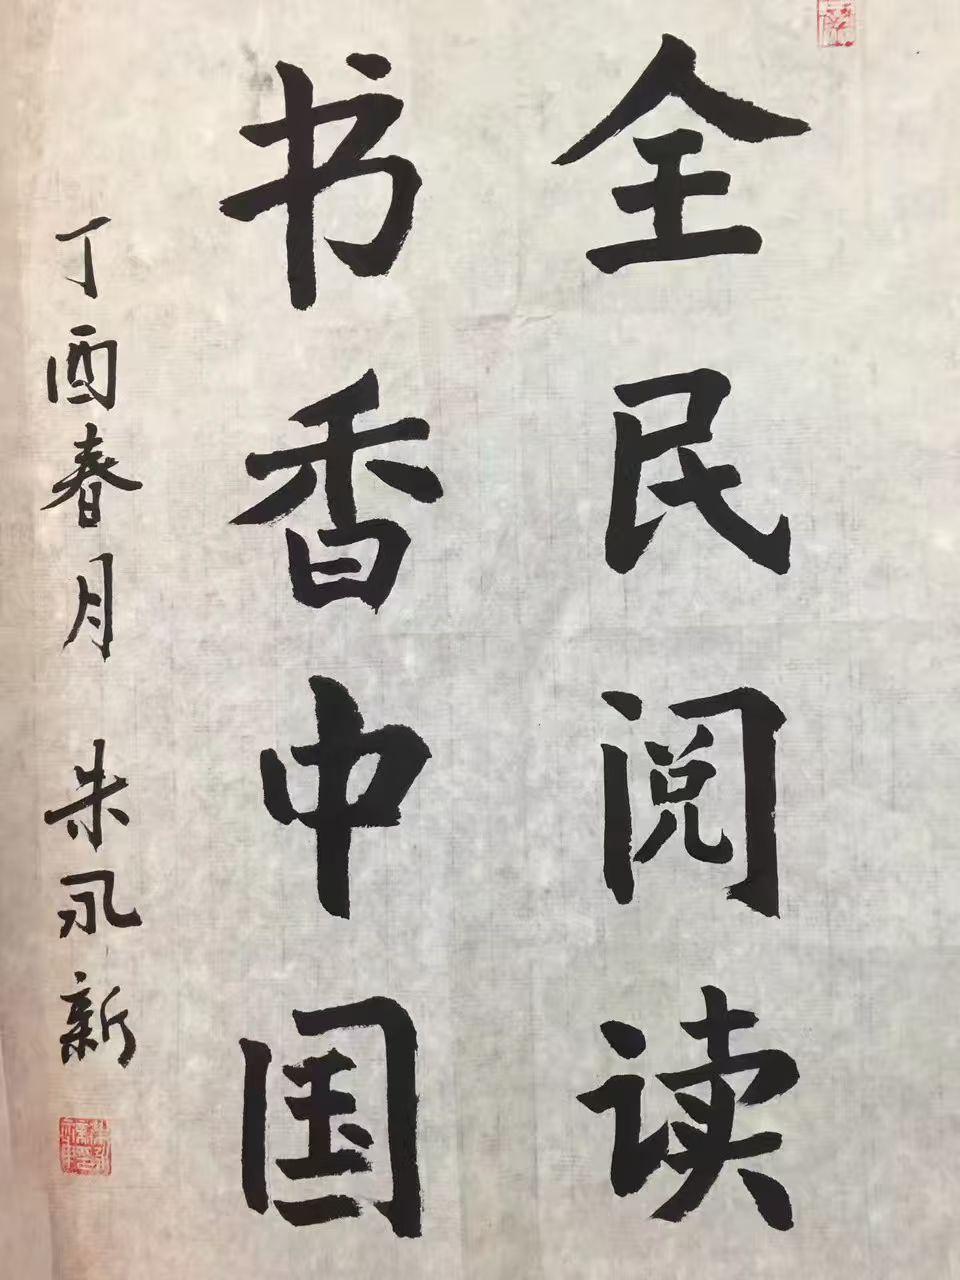 全民阅读
书香中国
丁酉春月 朱永新